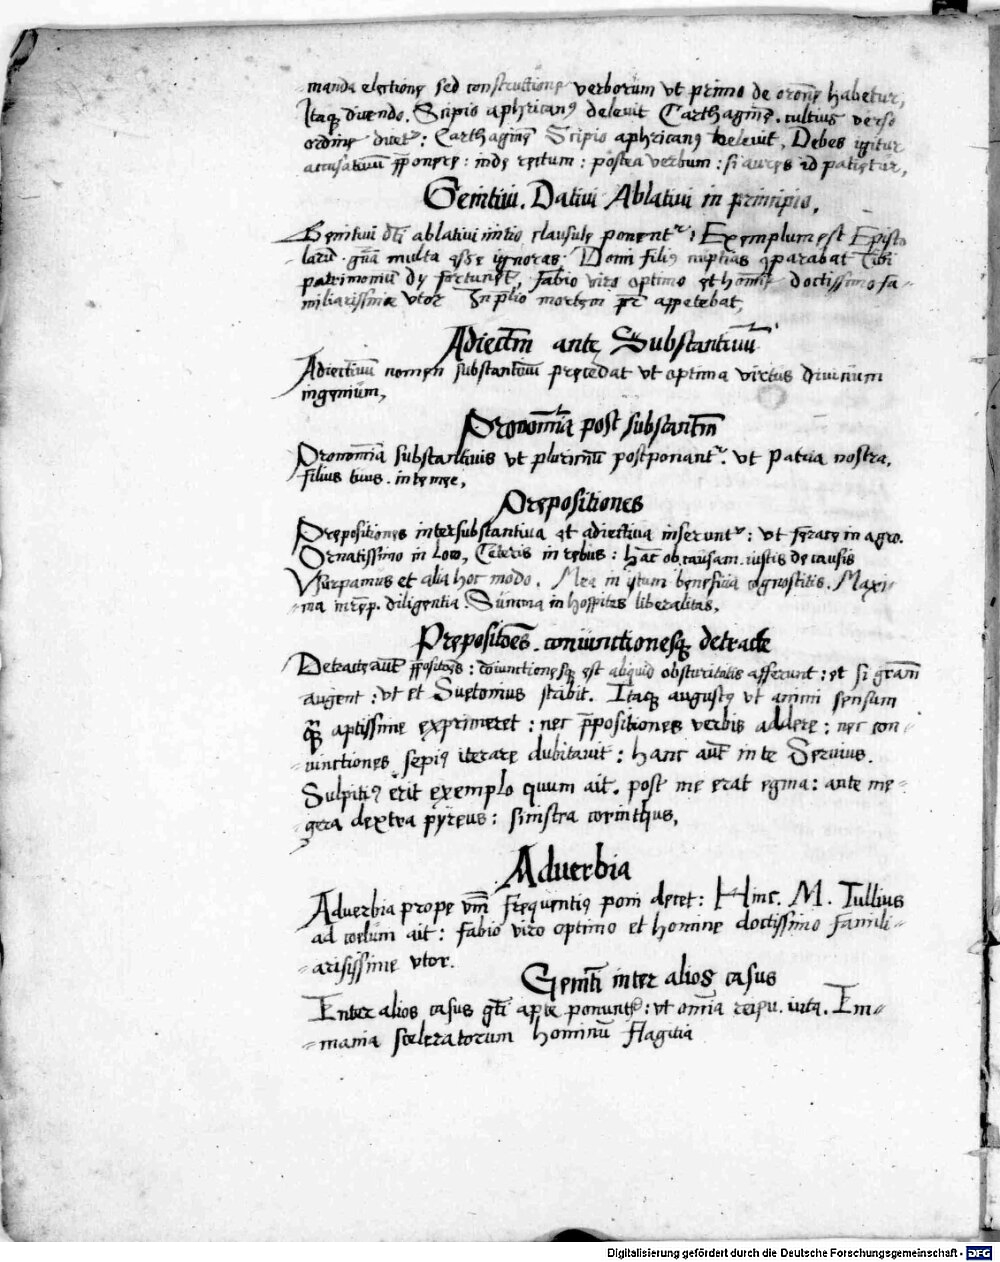 manda electione sed constructione verborum vt primo de orone habetur,
Itaq; dicendo. Scipio aphricanus delevit Carthagine. cultius verso
ordine dicet: Carthagine Scipio aphricanus delevit, Debes igitur
accusativu pponere: inde rectum: postea verbum: si aures id patietur,
Genitivi. Dativi Ablativi in principio.
Genitivi dti ablativi initio clausule ponentr: Exemplum est Episto
laru multa ignoras Domi filius nuptias parabat Tibi
patrimoniu dy fortunet, fabio viro optimo et homine doctissimo fa-
miliarissime vtor In plio mortem appetebat,
Adiectm ante Substantivu
Adiectivu nomen substantivu precedat vt optima virtus divinum
ingenium,
Pronomia post substantm
Pronomia substantivis vt plurimu postponantr. vt Patria nostra,
filius tuus.
Prepositiones
Prepositiones inter substantiva et adiectiva inseruntr: vt ferace in agro.
Ornatissimo in loco, Ceteris in rebus: hac ob causam. iustis de causis
Vsurpamus et alia hoc modo. Mea in istum beneficia cognoscitis. Maxi-
ma in rep. diligentia Summa in hospites liberalitas,
Prepositoes. coniunctionesq; detracte
Detracte aut ppositoes: coiunctionesq; est aliquid obscuritatis afferunt: et si gram
augent: vt et Suetonius scribit. Itaq; augustus vt animi sensum
q aptissime exprimeret: nec ppositiones verbis addere: nec con
iunctiones sepius iterare dubitavit: hanc aut in te Servius.
Sulpitius erit exemplo quum ait. post me erat egina: ante me-
gera dextra pyreus: sinistra corinthus,
Adverbia
Adverbia prope vm frequentius poni decet: Hinc. M. Tullius
ad coelum ait: fabio viro optimo et homine doctissimo famili-
arisissime vtor.
Geniti inter alios casus
Inter alios casus gti apte ponuntr: vt omia reipu. iura. Im-
mania sceleratorum hominu flagitia